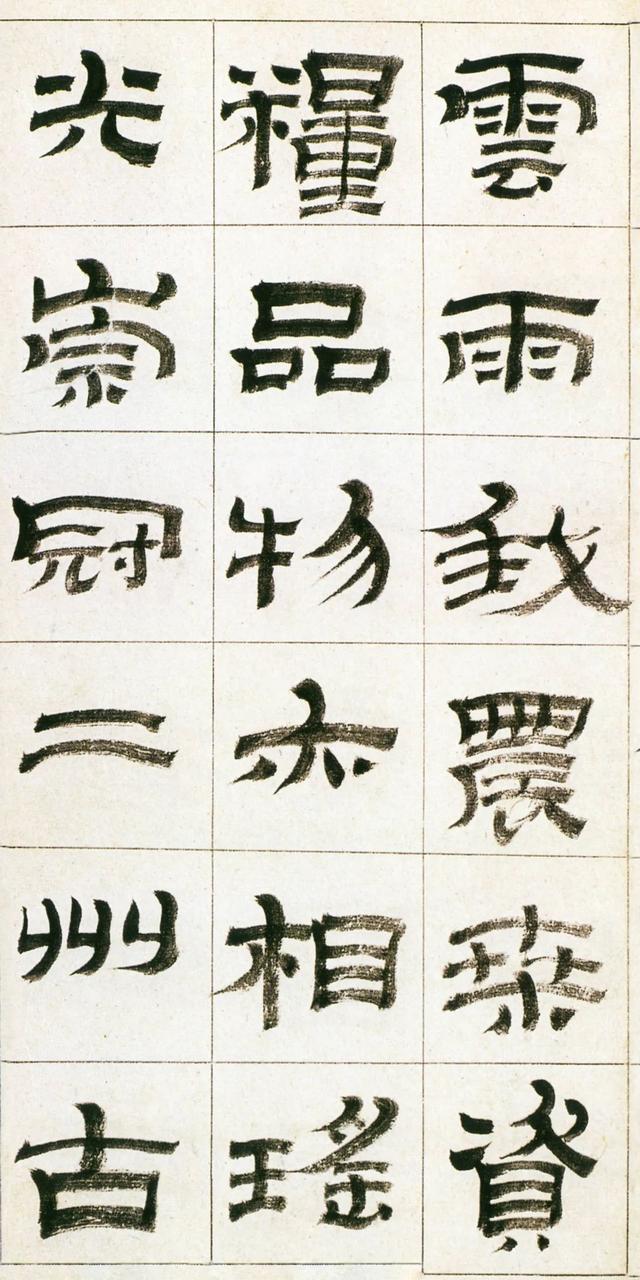 雲雨我農桒資
糧品物亦相瑤
光崇冠二州古